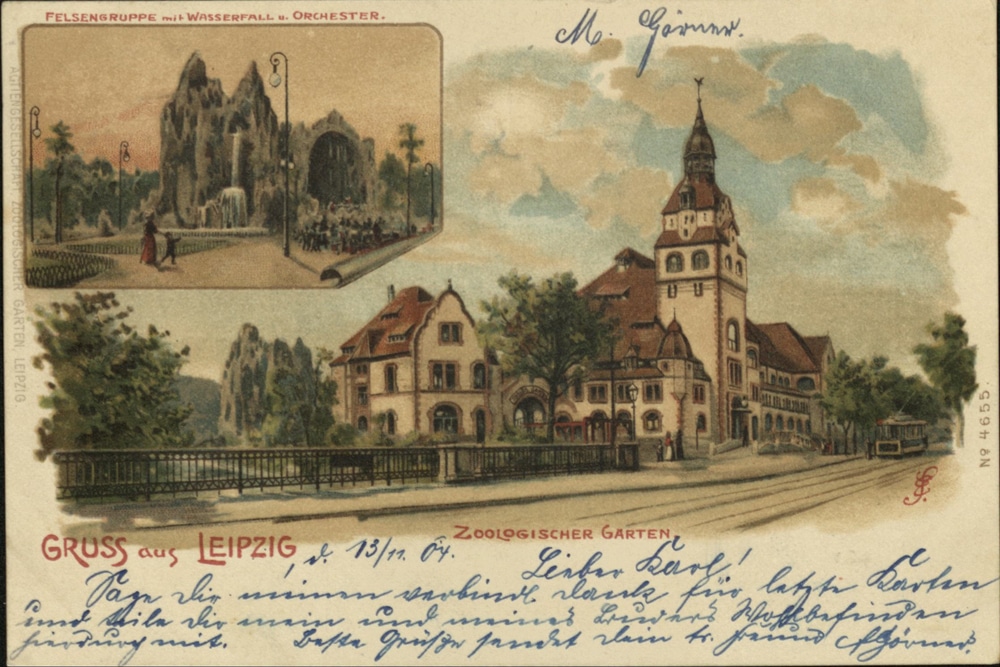 FELSENGRUPPE mit WASSERFALL u. ORCHESTER.
M. Görner.
ACTIENGESELLSCHAFT ZOOLOGISCHER GARTEN, LEIPZIG
Nº 4655.
ZOOLOGISCHER GARTEN.
GRUSS aus LEIPZIG, d. 13/11. 04.
Lieber Karl!
Sage Dir meinen verbindl. Dank für letzte Karten
und teile Dir mein und meines Bruders Wohlbefinden
hierdurch mit. Beste Grüße sendet Dein tr. Freund MGörner.